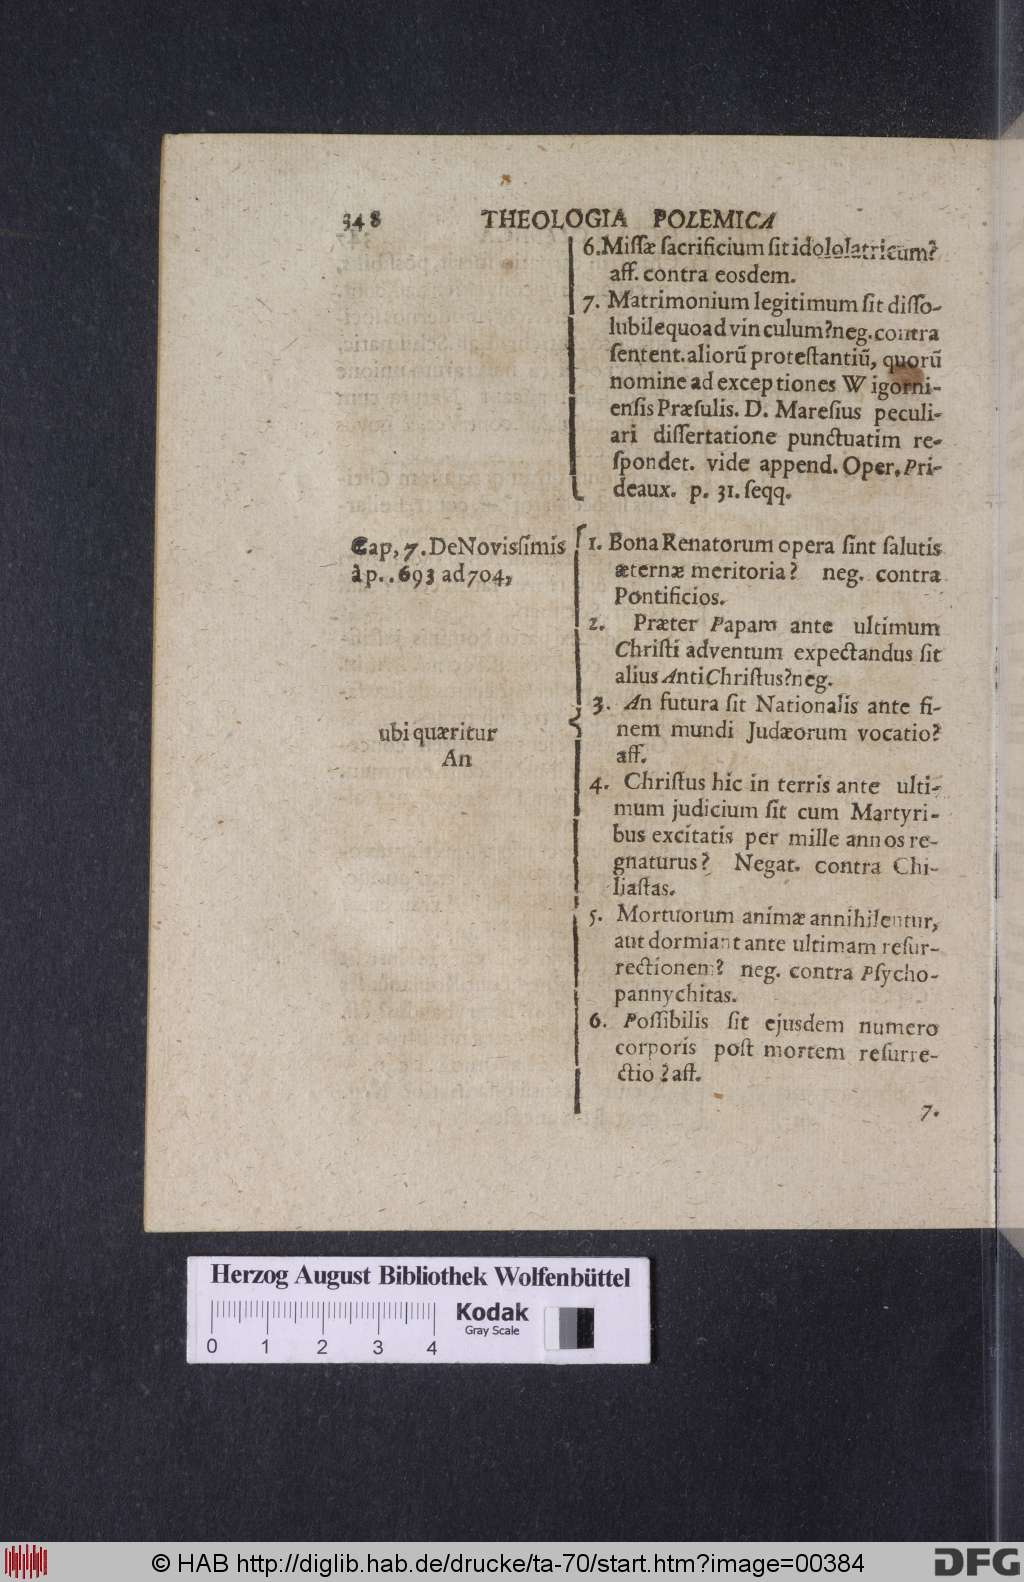 348 THEOLOGIA POLEMICA
6. Missæ sacrificium sit idololatricum?
aff. contra eosdem.
7. Matrimonium legitimum sit disso-
lubile quoad vin culum? neg. contra
sentent. aliorũ protestantiũ, quorũ
nomine ad excep tiones W igorni-
ensis Præsulis. D. Maresius peculi-
ari dissertatione punctuatim re-
spondet. vide append. Oper. Pri-
deaux. p. 31. seqq.
Cap, 7. De Novissimis
à p. . 693 ad 704,
ubi quæritur
An
1. Bona Renatorum opera sint salutis
æternæ meritoria? neg. contra
Pontificios.
2. Præter Papam ante ultimum
Christi adventum expectandus sit
alius AntiChristus? neg.
3. An futura sit Nationalis ante fi-
nem mundi Judæorum vocatio?
aff.
4. Christus hic in terris ante ulti-
mum judicium sit cum Martyri-
bus excitatis per mille annos re-
gnaturus? Negat. contra Chi-
liastas.
5. Mortuorum animæ annihilentur,
aut dormiant ante ultimam resur-
rectionem? neg. contra Psycho-
pannychitas.
6. Possibilis sit ejusdem numero
corporis post mortem resurre-
ctio? aff.
7.
Herzog August Bibliothek Wolfenbüttel
0 1 2 3 4
Kodak
Gray Scale
© HAB http://diglib.hab.de/drucke/ta-70/start.htm?image=00384
DFG